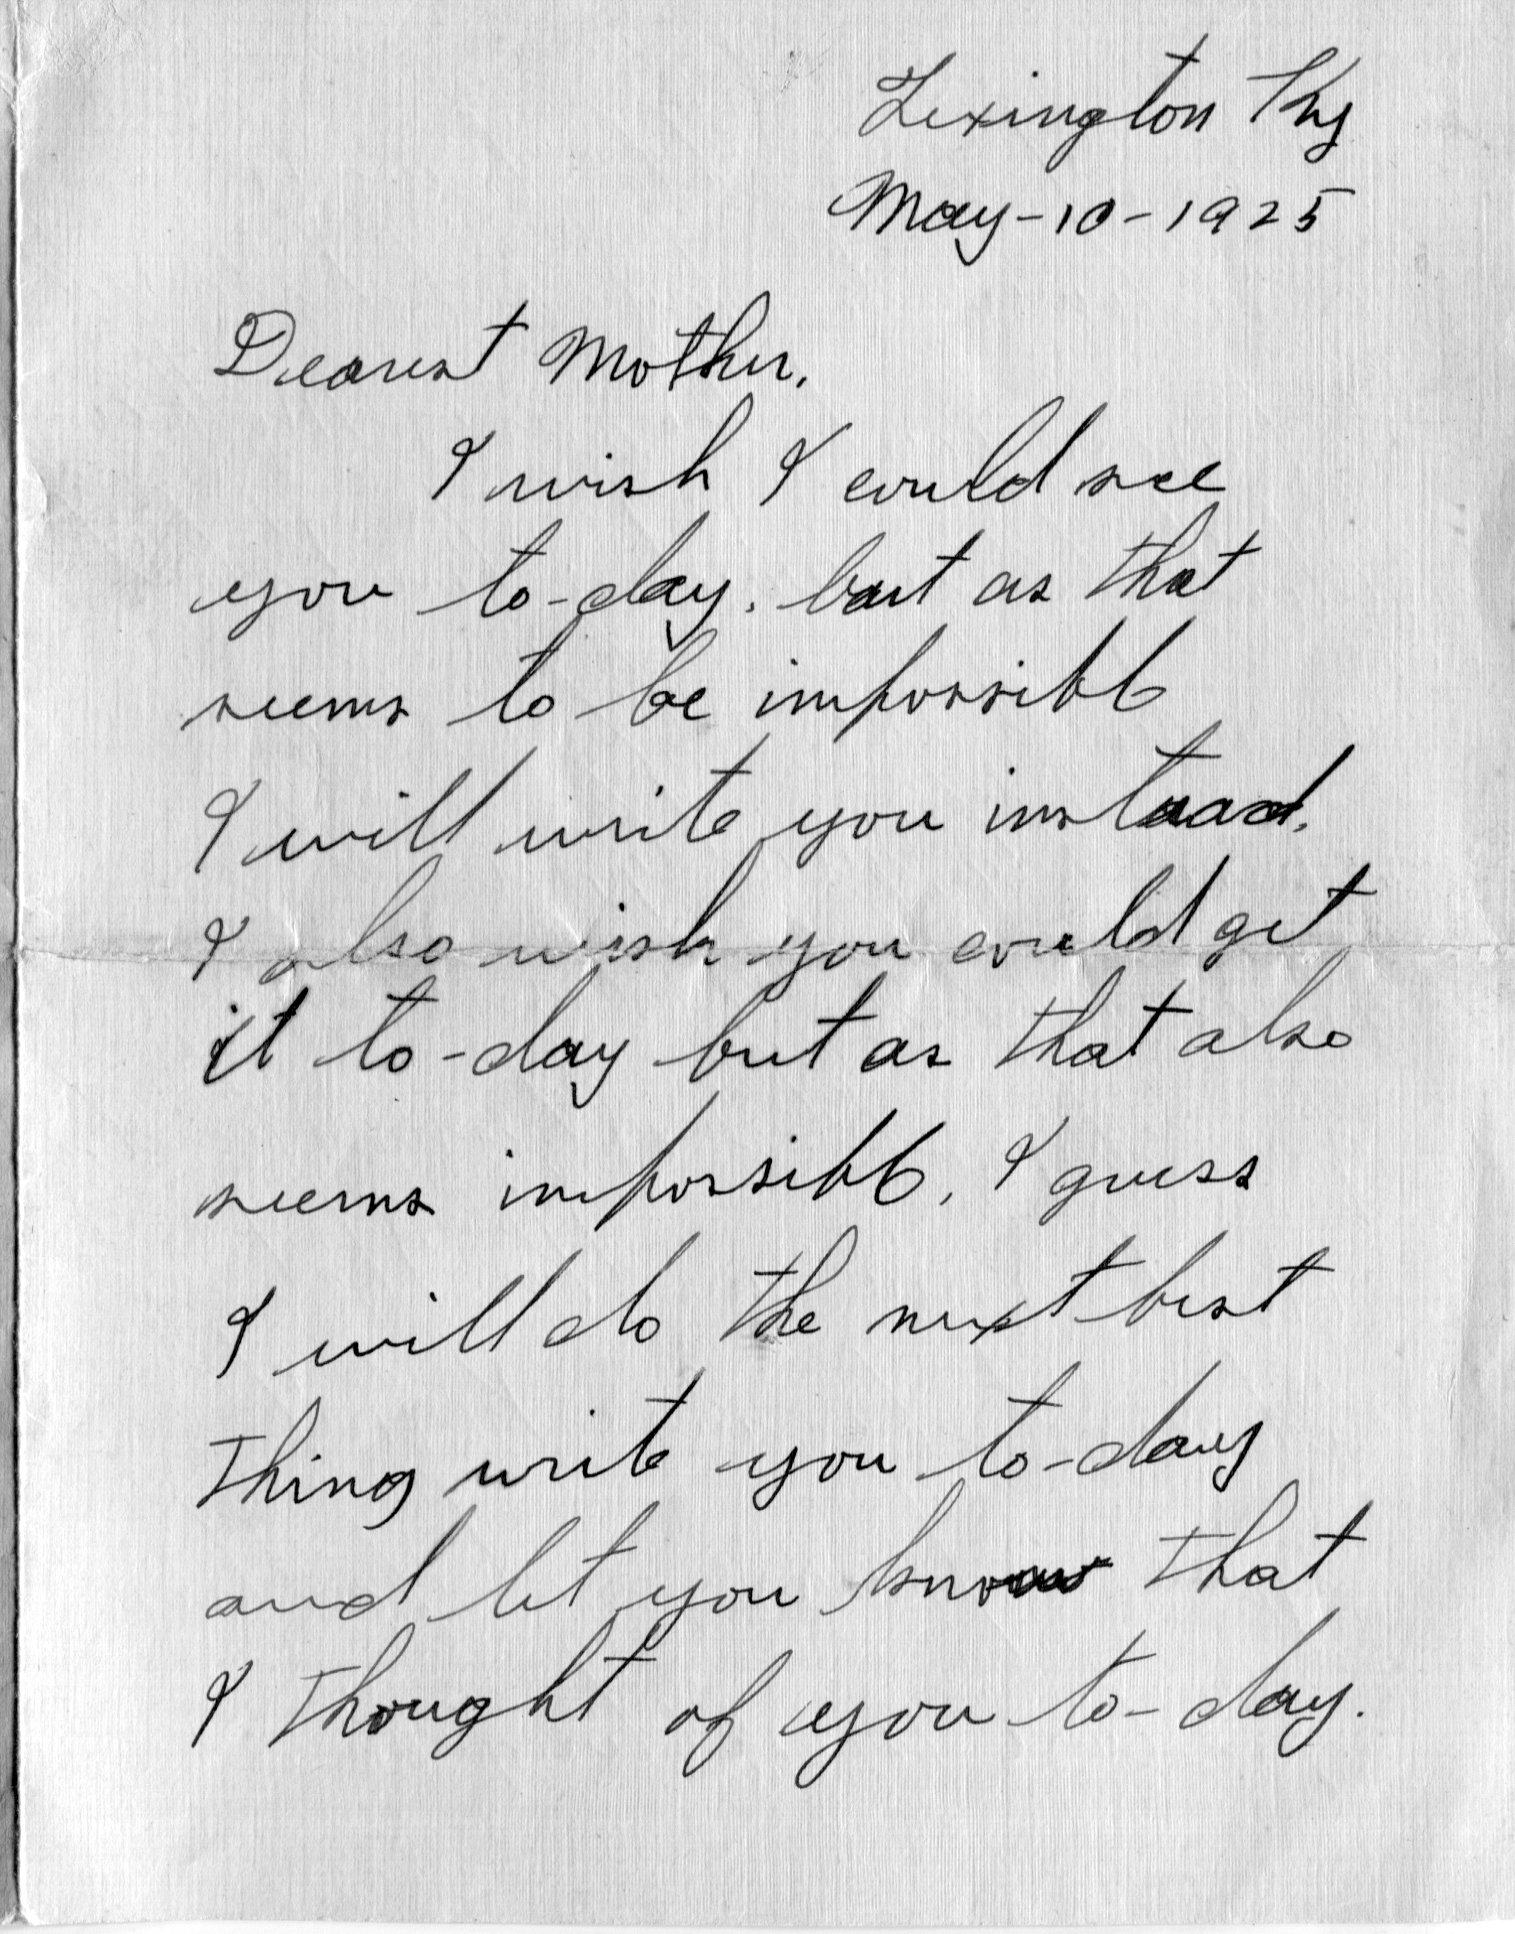 Lexington Ky
May-10-1925
Dearest Mother.
I wish I could see
you to-day. but as that
seems to be impossible
I will write you instead.
I also wish you could get
it to-day but as that also
seems impossible, I guess
I will do the next best
thing write you to-day
and let you know that
I thought of you to-day.